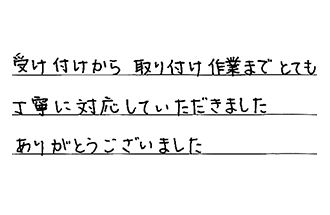 受け付けから 取り付け作業まで とても
丁寧に対応していただきました
ありがとうございました